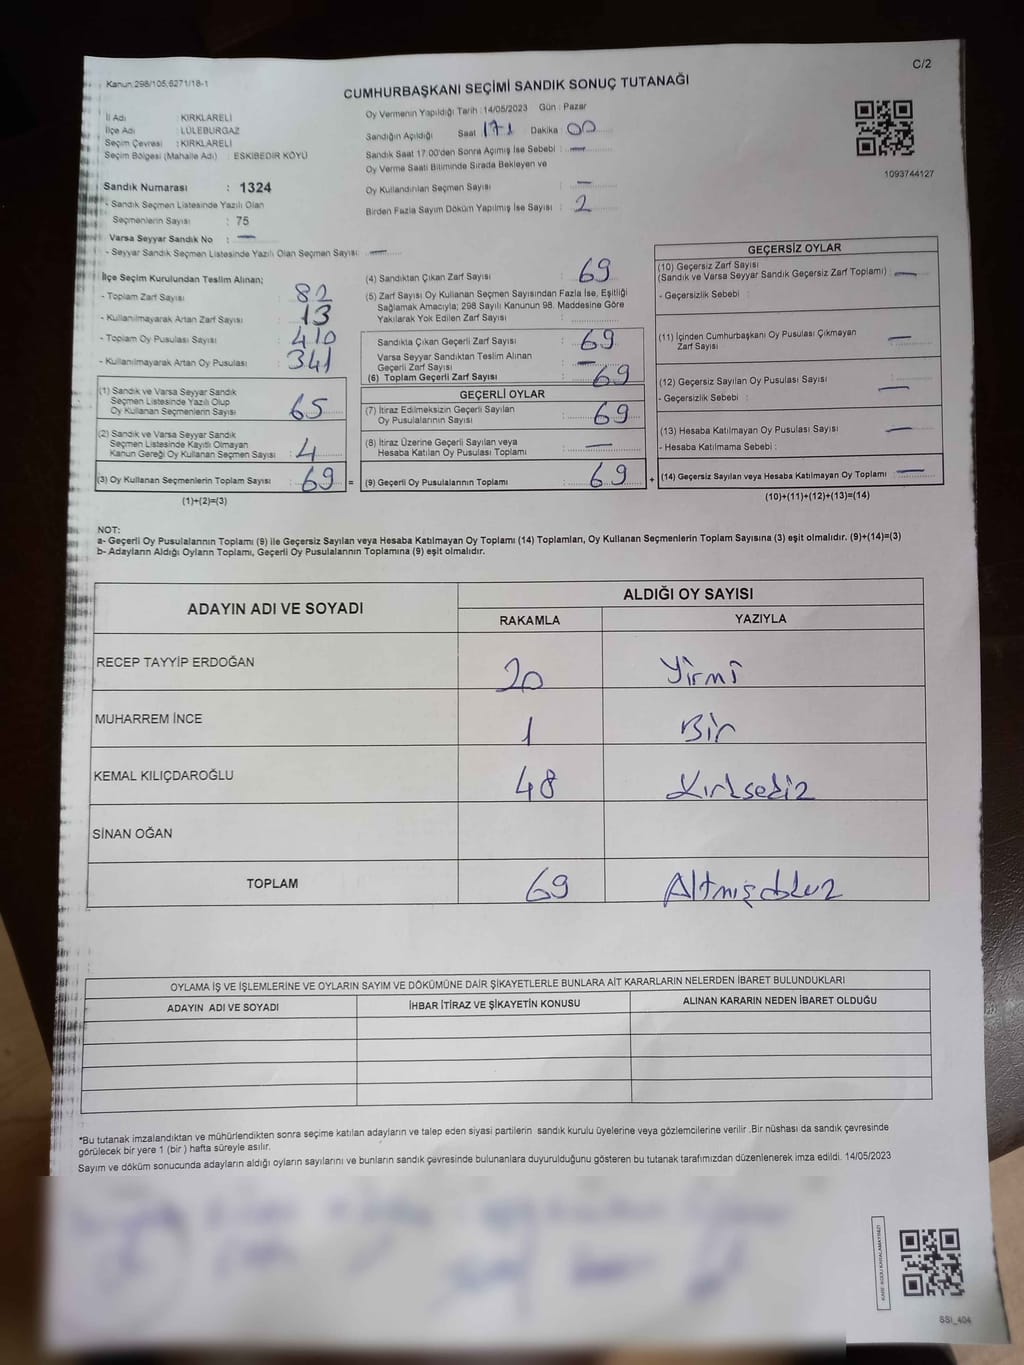 Kanun:298/105,6271/18-1
C/2
CUMHURBAŞKANI SEÇİMİ SANDIK SONUÇ TUTANAĞI
İl Adı : KIRKLARELİ
İlçe Adı : LÜLEBURGAZ
Seçim Çevresi : KIRKLARELİ
Seçim Bölgesi (Mahalle Adı) : ESKİBEDİR KÖYÜ
Sandık Numarası : 1324
- Sandık Seçmen Listesinde Yazılı Olan
Seçmenlerin Sayısı : 75
Varsa Seyyar Sandık No : —
- Seyyar Sandık Seçmen Listesinde Yazılı Olan Seçmen Sayısı: —
Oy Vermenin Yapıldığı Tarih : 14/05/2023 Gün : Pazar
Sandığın Açıldığı Saat : 17 Dakika : 00
Sandık Saat 17:00'den Sonra Açımış İse Sebebi : —
Oy Verme Saati Bitiminde Sırada Bekleyen ve
Oy Kullandırılan Seçmen Sayısı : —
Birden Fazla Sayım Döküm Yapılmış İse Sayısı : 2
1093744127
İlçe Seçim Kurulundan Teslim Alınan;
- Toplam Zarf Sayısı : 82
- Kullanılmayarak Artan Zarf Sayısı : 13
- Toplam Oy Pusulası Sayısı : 410
- Kullanılmayarak Artan Oy Pusulası : 341
(1) Sandık ve Varsa Seyyar Sandık
Seçmen Listesinde Yazılı Olup
Oy Kullanan Seçmenlerin Sayısı : 65
(2) Sandık ve Varsa Seyyar Sandık
Seçmen Listesinde Kayıtlı Olmayan
Kanun Gereği Oy Kullanan Seçmen Sayısı : 4
(3) Oy Kullanan Seçmenlerin Toplam Sayısı : 69 =
(1)+(2)=(3)
(4) Sandıktan Çıkan Zarf Sayısı : 69
(5) Zarf Sayısı Oy Kullanan Seçmen Sayısından Fazla İse, Eşitliği
Sağlamak Amacıyla; 298 Sayılı Kanunun 98. Maddesine Göre
Yakılarak Yok Edilen Zarf Sayısı :
Sandıkla Çıkan Geçerli Zarf Sayısı : 69
Varsa Seyyar Sandıktan Teslim Alınan
Geçerli Zarf Sayısı : —
(6) Toplam Geçerli Zarf Sayısı : 69
GEÇERLİ OYLAR
(7) İtiraz Edilmeksizin Geçerli Sayılan
Oy Pusulalarının Sayısı : 69
(8) İtiraz Üzerine Geçerli Sayılan veya
Hesaba Katılan Oy Pusulası Toplamı : —
(9) Geçerli Oy Pusulalarının Toplamı : 69 +
GEÇERSİZ OYLAR
(10) Geçersiz Zarf Sayısı
(Sandık ve Varsa Seyyar Sandık Geçersiz Zarf Toplamı) : —
- Geçersizlik Sebebi :
(11) İçinden Cumhurbaşkanı Oy Pusulası Çıkmayan
Zarf Sayısı : —
(12) Geçersiz Sayılan Oy Pusulası Sayısı : —
- Geçersizlik Sebebi :
(13) Hesaba Katılmayan Oy Pusulası Sayısı : —
- Hesaba Katılmama Sebebi :
(14) Geçersiz Sayılan veya Hesaba Katılmayan Oy Toplamı : —
(10)+(11)+(12)+(13)=(14)
NOT:
a- Geçerli Oy Pusulalarının Toplamı (9) ile Geçersiz Sayılan veya Hesaba Katılmayan Oy Toplamı (14) Toplamları, Oy Kullanan Seçmenlerin Toplam Sayısına (3) eşit olmalıdır. (9)+(14)=(3)
b- Adayların Aldığı Oyların Toplamı, Geçerli Oy Pusulalarının Toplamına (9) eşit olmalıdır.
ADAYIN ADI VE SOYADI ALDIĞI OY SAYISI
RAKAMLA YAZIYLA
RECEP TAYYİP ERDOĞAN 20 Yirmi
MUHARREM İNCE 1 Bir
KEMAL KILIÇDAROĞLU 48 Kırksekiz
SİNAN OĞAN
TOPLAM 69 Altmışdokuz
OYLAMA İŞ VE İŞLEMLERİNE VE OYLARIN SAYIM VE DÖKÜMÜNE DAİR ŞİKAYETLERLE BUNLARA AİT KARARLARIN NELERDEN İBARET BULUNDUKLARI
ADAYIN ADI VE SOYADI İHBAR İTİRAZ VE ŞİKAYETİN KONUSU ALINAN KARARIN NEDEN İBARET OLDUĞU
*Bu tutanak imzalandıktan ve mühürlendikten sonra seçime katılan adayların ve talep eden siyasi partilerin sandık kurulu üyelerine veya gözlemcilerine verilir .Bir nüshası da sandık çevresinde
görülecek bir yere 1 (bir ) hafta süreyle asılır.
Sayım ve döküm sonucunda adayların aldığı oyların sayılarını ve bunların sandık çevresinde bulunanlara duyurulduğunu gösteren bu tutanak tarafımızdan düzenlenerek imza edildi. 14/05/2023
KARE KODU KARALAMAYINIZ!
SSİ_404